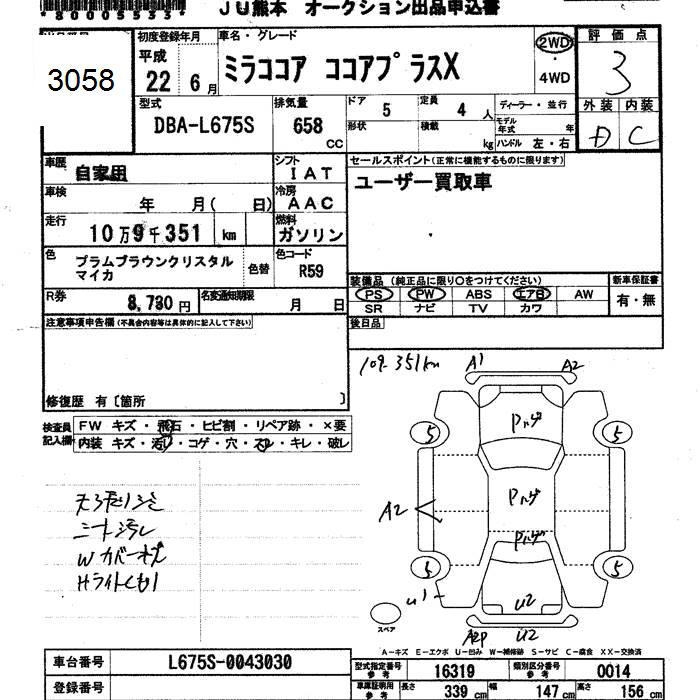 *80005533*
JU熊本 オークション出品申込書
3058
初度登録年月
平成
22 6月
車名・グレード
ミラココア ココアプラスX
2WD
・
4WD
評価点
3
外装 内装
D C
型式
DBA-L675S
排気量
658 CC
ドア 5
定員 4 人
形状
積載 kg
ディーラー・並行
モデル年式 年
ハンドル 左・右
車歴
自家用
シフト
IAT
セールスポイント(正常に機能するものに限ります)
ユーザー買取車
車検
年 月( 日)
冷房
AAC
走行
10万9千351 km
燃料
ガソリン
色
プラムブラウンクリスタル
マイカ
色替
色コード
R59
R券
8,730円
名変通知期限
月 日
装備品 (純正品に限り○をつけてください)
PS PW ABS エアB AW
SR ナビ TV カワ
新車保証書
有・無
注意事項申告欄(不具合内容等は具体的に記入して下さい)
後日品
修復歴 有〔箇所 〕
検査員記入欄
FW キズ・飛石・ヒビ割・リペア跡・×要
内装 キズ・汚レ・コゲ・穴・スレ・キレ・破レ
109.351km
A1
A2
Pハゲ
5
5
Pハゲ
A2
Pハゲ
5
5
U1
U2
スペア
A2P
U2
シート汚レ
Wカバー
Hライトくもり
A-キズ E-エクボ U-凹み W-補修跡 S-サビ C-腐食 XX-交換済
車台番号
L675S-0043030
型式指定番号
参考
16319
類別区分番号
参考
0014
登録番号
車庫証明用
参考
長さ 339 cm
幅 147 cm
高さ 156 cm